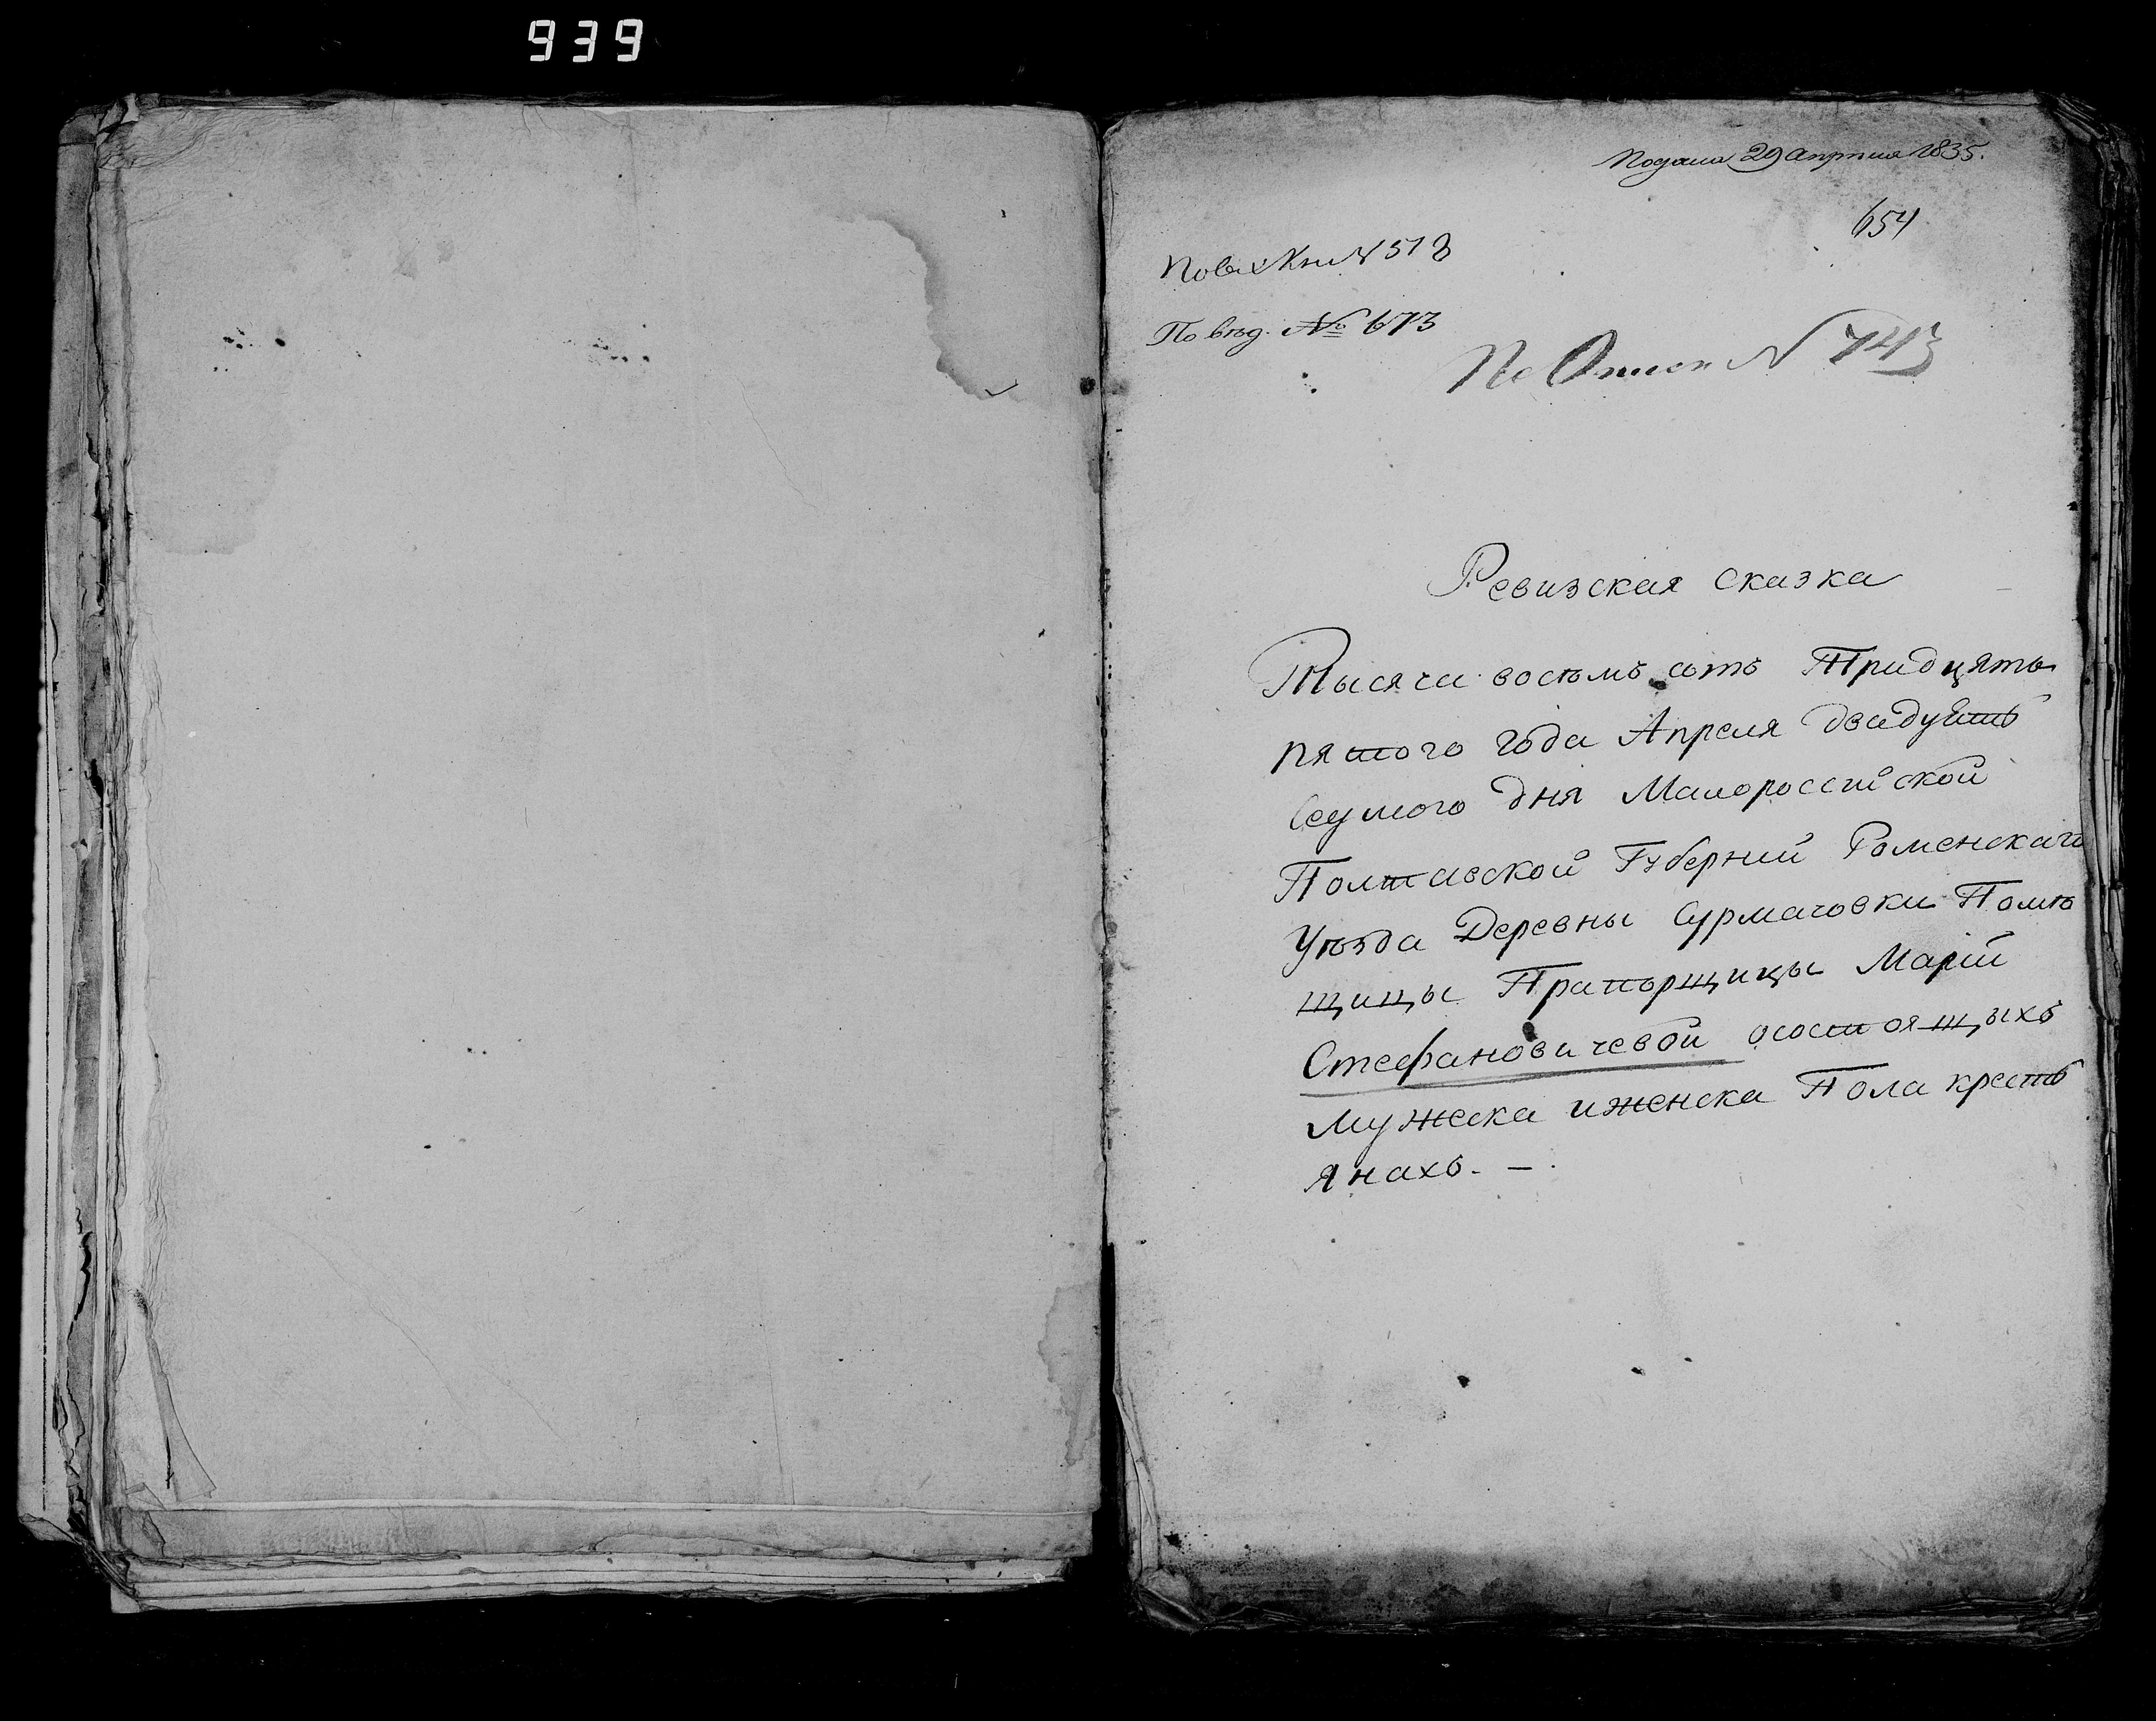 939
Подана 29 апреля 1835.
654
По вх Кни № 518
По вѣд. № 673
По Описи N 743
Ревизская сказка
Тысяча восѣмъ сотъ Тридцять
пятого года Апреля двадцять
Седмого дня Малороссійской
Полтавской Губерніи Роменскаго
Уѣзда Деревны Сурмачовки Помѣ
щицы Прапорщицы Маріи
Стефановичевой осостоящыхъ
мужеска иженска Пола кресть
янахъ. —